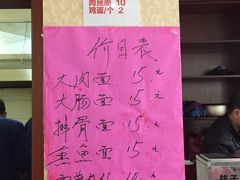 肉丝面 10
鸡蛋/个 2
价目表
大肉面 15元
大肠面 15元
排骨面 15元
熏鱼面 15元
筷子